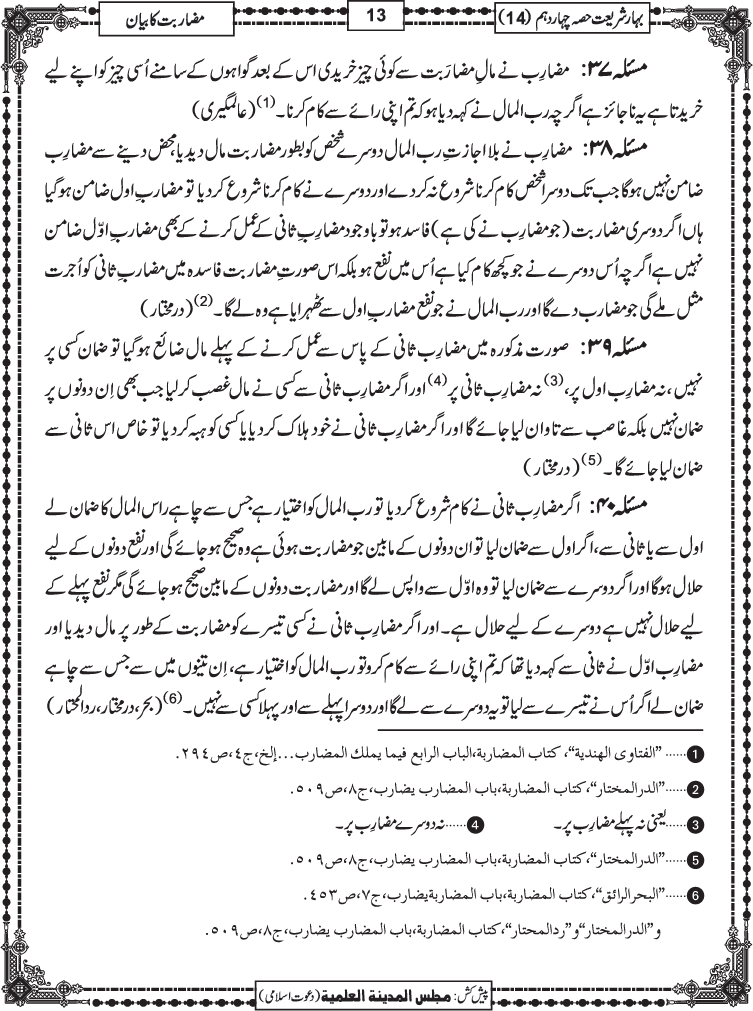 بہار شریعت حصہ چہاردہم (14)
13
مضاربت کا بیان
مسئلہ ۳۷: مضارِب نے مالِ مضارَبت سے کوئی چیز خریدی اس کے بعد گواہوں کے سامنے اُسی چیز کو اپنے لیے
خریدتا ہے یہ ناجائز ہے اگرچہ رب المال نے کہہ دیا ہو کہ تم اپنی رائے سے کام کرنا۔(1) (عالمگیری)
مسئلہ ۳۸: مضارِب نے بلا اجازتِ رب المال دوسرے شخص کو بطور مضاربت مال دیدیا، محض دینے سے مضارِب
ضامن نہیں ہوگا جب تک دوسرا شخص کام کرنا شروع نہ کردے اور دوسرے نے کام کرنا شروع کردیا تو مضارِب اول ضامن ہوگیا
ہاں اگر دوسری مضاربت (جو مضارِب نے کی ہے) فاسد ہو تو باوجود مضارِب ثانی کے عمل کرنے کے بھی مضاربِ اوّل ضامن
نہیں ہے اگرچہ اُس دوسرے نے جو کچھ کام کیا ہے اُس میں نفع ہو بلکہ اس صورتِ مضاربت فاسدہ میں مضاربِ ثانی کو اُجرت
مثل ملے گی جو مضارب دے گا اور رب المال نے جو نفع مضاربِ اول سے ٹھہرایا ہے وہ لے گا۔(2) (درمختار)
مسئلہ ۳۹: صورت مذکورہ میں مضارِب ثانی کے پاس سے عمل کرنے کے پہلے مال ضائع ہوگیا تو ضمان کسی پر
نہیں، نہ مضارِب اول پر،(3) نہ مضارب ثانی پر(4) اور اگر مضارِب ثانی سے کسی نے مال غصب کرلیا جب بھی اِن دونوں پر
ضمان نہیں بلکہ غاصب سے تاوان لیا جائے گا اور اگر مضارِب ثانی نے خود ہلاک کردیا یا کسی کو ہبہ کردیا تو خاص اس ثانی سے
ضمان لیا جائے گا۔(5) (درمختار)
مسئلہ ۴۰: اگر مضارِب ثانی نے کام شروع کردیا تو رب المال کو اختیار ہے جس سے چاہے راس المال کا ضمان لے
اول سے یا ثانی سے، اگر اول سے ضمان لیا تو ان دونوں کے مابین جو مضاربت ہوئی ہے وہ صحیح ہوجائے گی اور نفع دونوں کے لیے
حلال ہوگا اور اگر دوسرے سے ضمان لیا تو وہ اوّل سے واپس لے گا اور مضاربت دونوں کے مابین صحیح ہوجائے گی مگر نفع پہلے کے
لیے حلال نہیں ہے دوسرے کے لیے حلال ہے۔ اور اگر مضارِب ثانی نے کسی تیسرے کو مضاربت کے طور پر مال دیدیا اور
مضارِب اوّل نے ثانی سے کہہ دیا تھا کہ تم اپنی رائے سے کام کرو تو رب المال کو اختیار ہے، اِن تینوں میں سے جس سے چاہے
ضمان لے اگر اُس نے تیسرے سے لیا تو یہ دوسرے سے لے گا اور دوسرا پہلے سے اور پہلا کسی سے نہیں۔(6) (بحر، درمختار، ردالمحتار)
1 ......"الفتاوى الهندية"، كتاب المضاربة،الباب الرابع فيما يملك المضارب...إلخ،ج٤،ص٢٩٤.
2 ......"الدرالمختار"،كتاب المضاربة،باب المضارب يضارب،ج٨،ص٥٠٩.
3 ......یعنی نہ پہلے مضارِب پر۔ 4 ......نہ دوسرے مضارِب پر۔
5 ......"الدرالمختار"،كتاب المضاربة،باب المضارب يضارب،ج٨،ص٥٠٩.
6 ......"البحرالرائق"،كتاب المضاربة،باب المضاربةيضارب،ج٧،ص٤٥٣.
و"الدرالمختار"و"ردالمحتار"،كتاب المضاربة،باب المضارب يضارب،ج٨،ص٥٠٩.
پیش کش: مجلس المدينة العلمية (دعوت اسلامی)